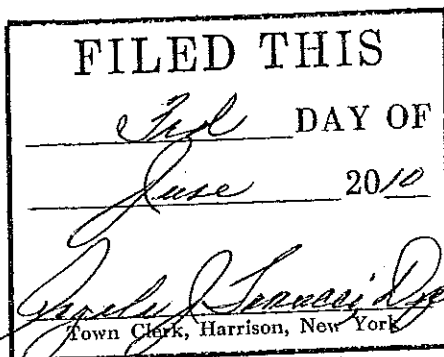 FILED THIS
3rd DAY OF
June 2010
Town Clerk, Harrison, New York